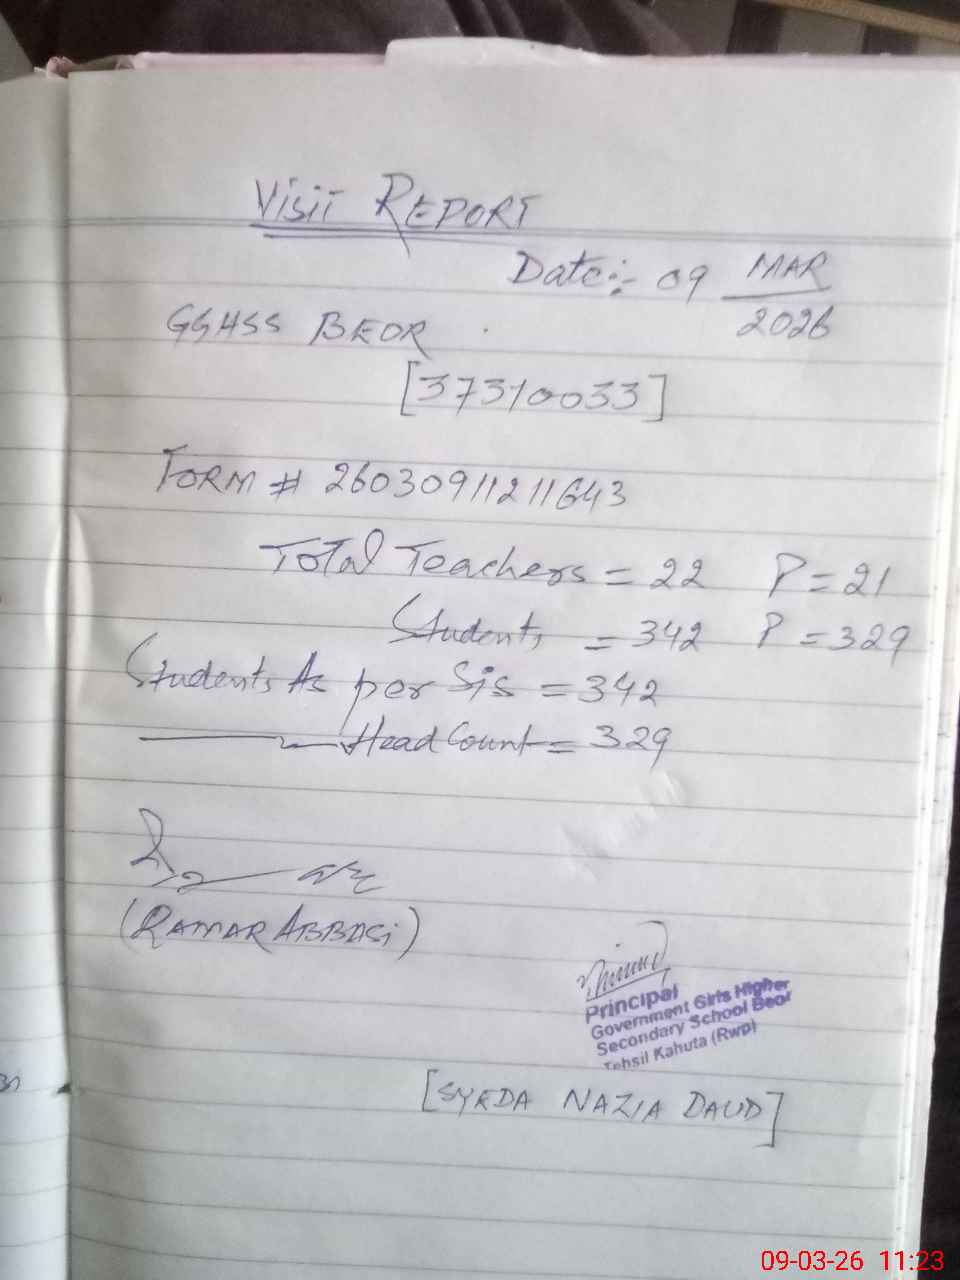 Visit REPORT
Date:- 09 MAR
2026
GGHSS BEOR
[37310033]
FORM # 26030911211643
Total Teachers = 22 P = 21
Students = 342 P = 329
Students As per Sis = 342
Head Count = 329
(QAMAR ABBASi)
Principal
Government Girls Higher
Secondary School Beor
Tehsil Kahuta (Rwp)
[SYEDA NAZIA DAUD]
09-03-26 11:23